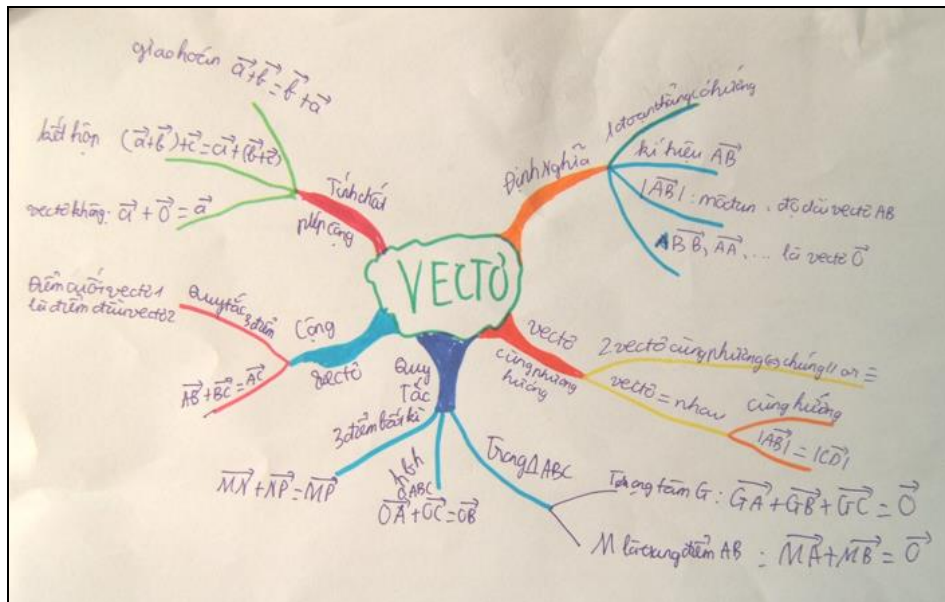 VECTƠ
Định nghĩa
1 đoạn thẳng có hướng
kí hiệu $\overrightarrow{AB}$
|$\overrightarrow{AB}$| : môđun . độ dài vectơ AB
$\overrightarrow{BB}$, $\overrightarrow{AA}$, ... là vectơ $\overrightarrow{0}$
vectơ
cùng phương
hướng
2 vectơ cùng phương ⇔ chúng // or ≡
vectơ = nhau
cùng hướng
|$\overrightarrow{AB}$| = |$\overrightarrow{CD}$|
Quy
Tắc
3 điểm bất kì
$\overrightarrow{MN}$ + $\overrightarrow{NP}$ = $\overrightarrow{MP}$
hbh
OABC
$\overrightarrow{OA}$ + $\overrightarrow{OC}$ = $\overrightarrow{OB}$
Trong Δ ABC
Trọng tâm G : $\overrightarrow{GA}$ + $\overrightarrow{GB}$ + $\overrightarrow{GC}$ = $\overrightarrow{0}$
M là trung điểm AB : $\overrightarrow{MA}$ + $\overrightarrow{MB}$ = $\overrightarrow{0}$
Cộng
vectơ
Quy tắc 3 điểm
Điểm cuối vectơ 1
là điểm đầu vectơ 2
$\overrightarrow{AB}$ + $\overrightarrow{BC}$ = $\overrightarrow{AC}$
Tính chất
phép cộng
giao hoán $\vec{a}$ + $\vec{b}$ = $\vec{b}$ + $\vec{a}$
kết hợp ($\vec{a}$ + $\vec{b}$) + $\vec{c}$ = $\vec{a}$ + ($\vec{b}$ + $\vec{c}$)
vectơ không: $\vec{a}$ + $\vec{0}$ = $\vec{a}$